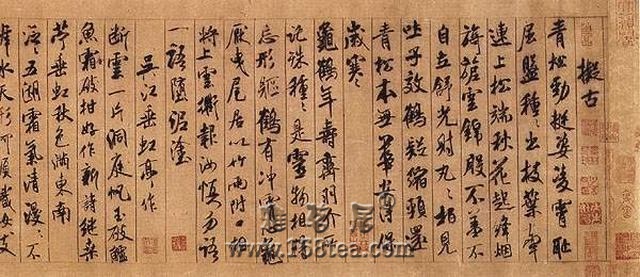 擬古
青松勁挺姿凌霄恥
屈盤種種出枝葉牽
連上松端秋花起絳烟
旖旎雲錦殷不羞不
自立舒光射丸丸柏見
吐子效鶴疑縮頸還
青松本無華安得保
歲寒
龜鶴年壽齊羽介所
託殊種種是靈物相得
忘形軀鶴有沖霄心龜
厭曳尾居以竹兩附口相
將上雲衢報汝慎勿語
一語墮泥塗
吳江垂虹亭作
斷雲一片洞庭帆玉破鱸
魚霜破柑好作新詩繼桑
苧垂虹秋色滿東南
泛泛五湖霜氣清漫漫不
辨水天形何須織女支
雅茗居
www.168tea.com